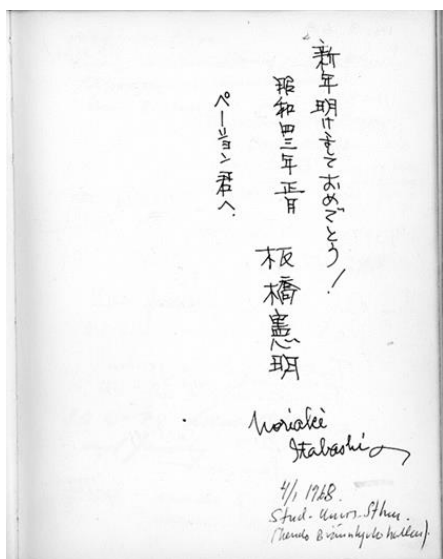 新年明けましておめでとう!
昭和四三年正月
板橋憲明
ペーション君へ.
Noriaki
Itabashi
4/1 1968.
Stud.